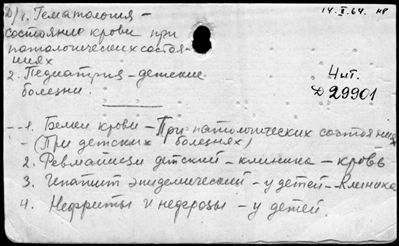 14.X.64. нр
Д/г. Гематология –
состояние крови при
патологических состоя-
ниях
2. Педиатрия – детские
болезни.
Чит.
Д 29901
1. Белки крови – При патологических состояниях
– (При детских болезнях)
2. Ревматизм детский – клиника – кровь
3. Гепатит эпидемический – у детей – клиника
4. Нефриты и нефрозы – у детей.